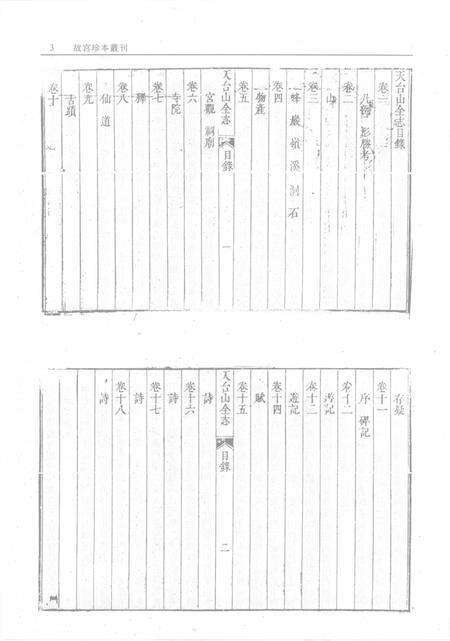 3 故宫珍本叢刊
天台山全志目錄
卷一
形勝考
卷二
山
卷三
峰巖嶺溪洞石
卷四
物産
卷五
天台山全志 目錄 一
宮觀 祠廟
卷六
寺院
卷七
釋
卷八
仙道
卷九
古蹟
卷十
卷十一
序 碑記
卷十二
記
遊記
卷十四
賦
卷十五
天台山全志 目錄 二
詩
卷十六
詩
卷十七
詩
卷十八
詩